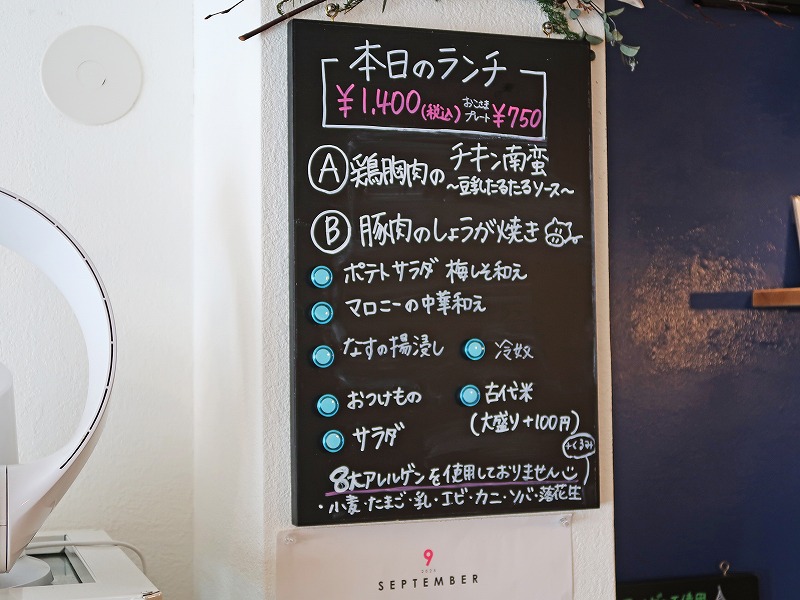 本日のランチ
¥1,400(税込) おこさまプレート ¥750
Ⓐ 鶏胸肉の チキン南蛮
〜豆乳たるたるソース〜
Ⓑ 豚肉のしょうが焼き
ポテトサラダ 梅しそ和え
マロニーの中華和え
なすの揚浸し 冷奴
おつけもの 古代米
(大盛り+100円)
サラダ
+くるみ
8大アレルゲンを使用しておりません
・小麦・たまご・乳・エビ・カニ・ソバ・落花生
9
SEPTEMBER